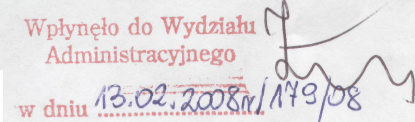 Wpłynęło do Wydziału
Administracyjnego
w dniu 13.02.2008r/179/08